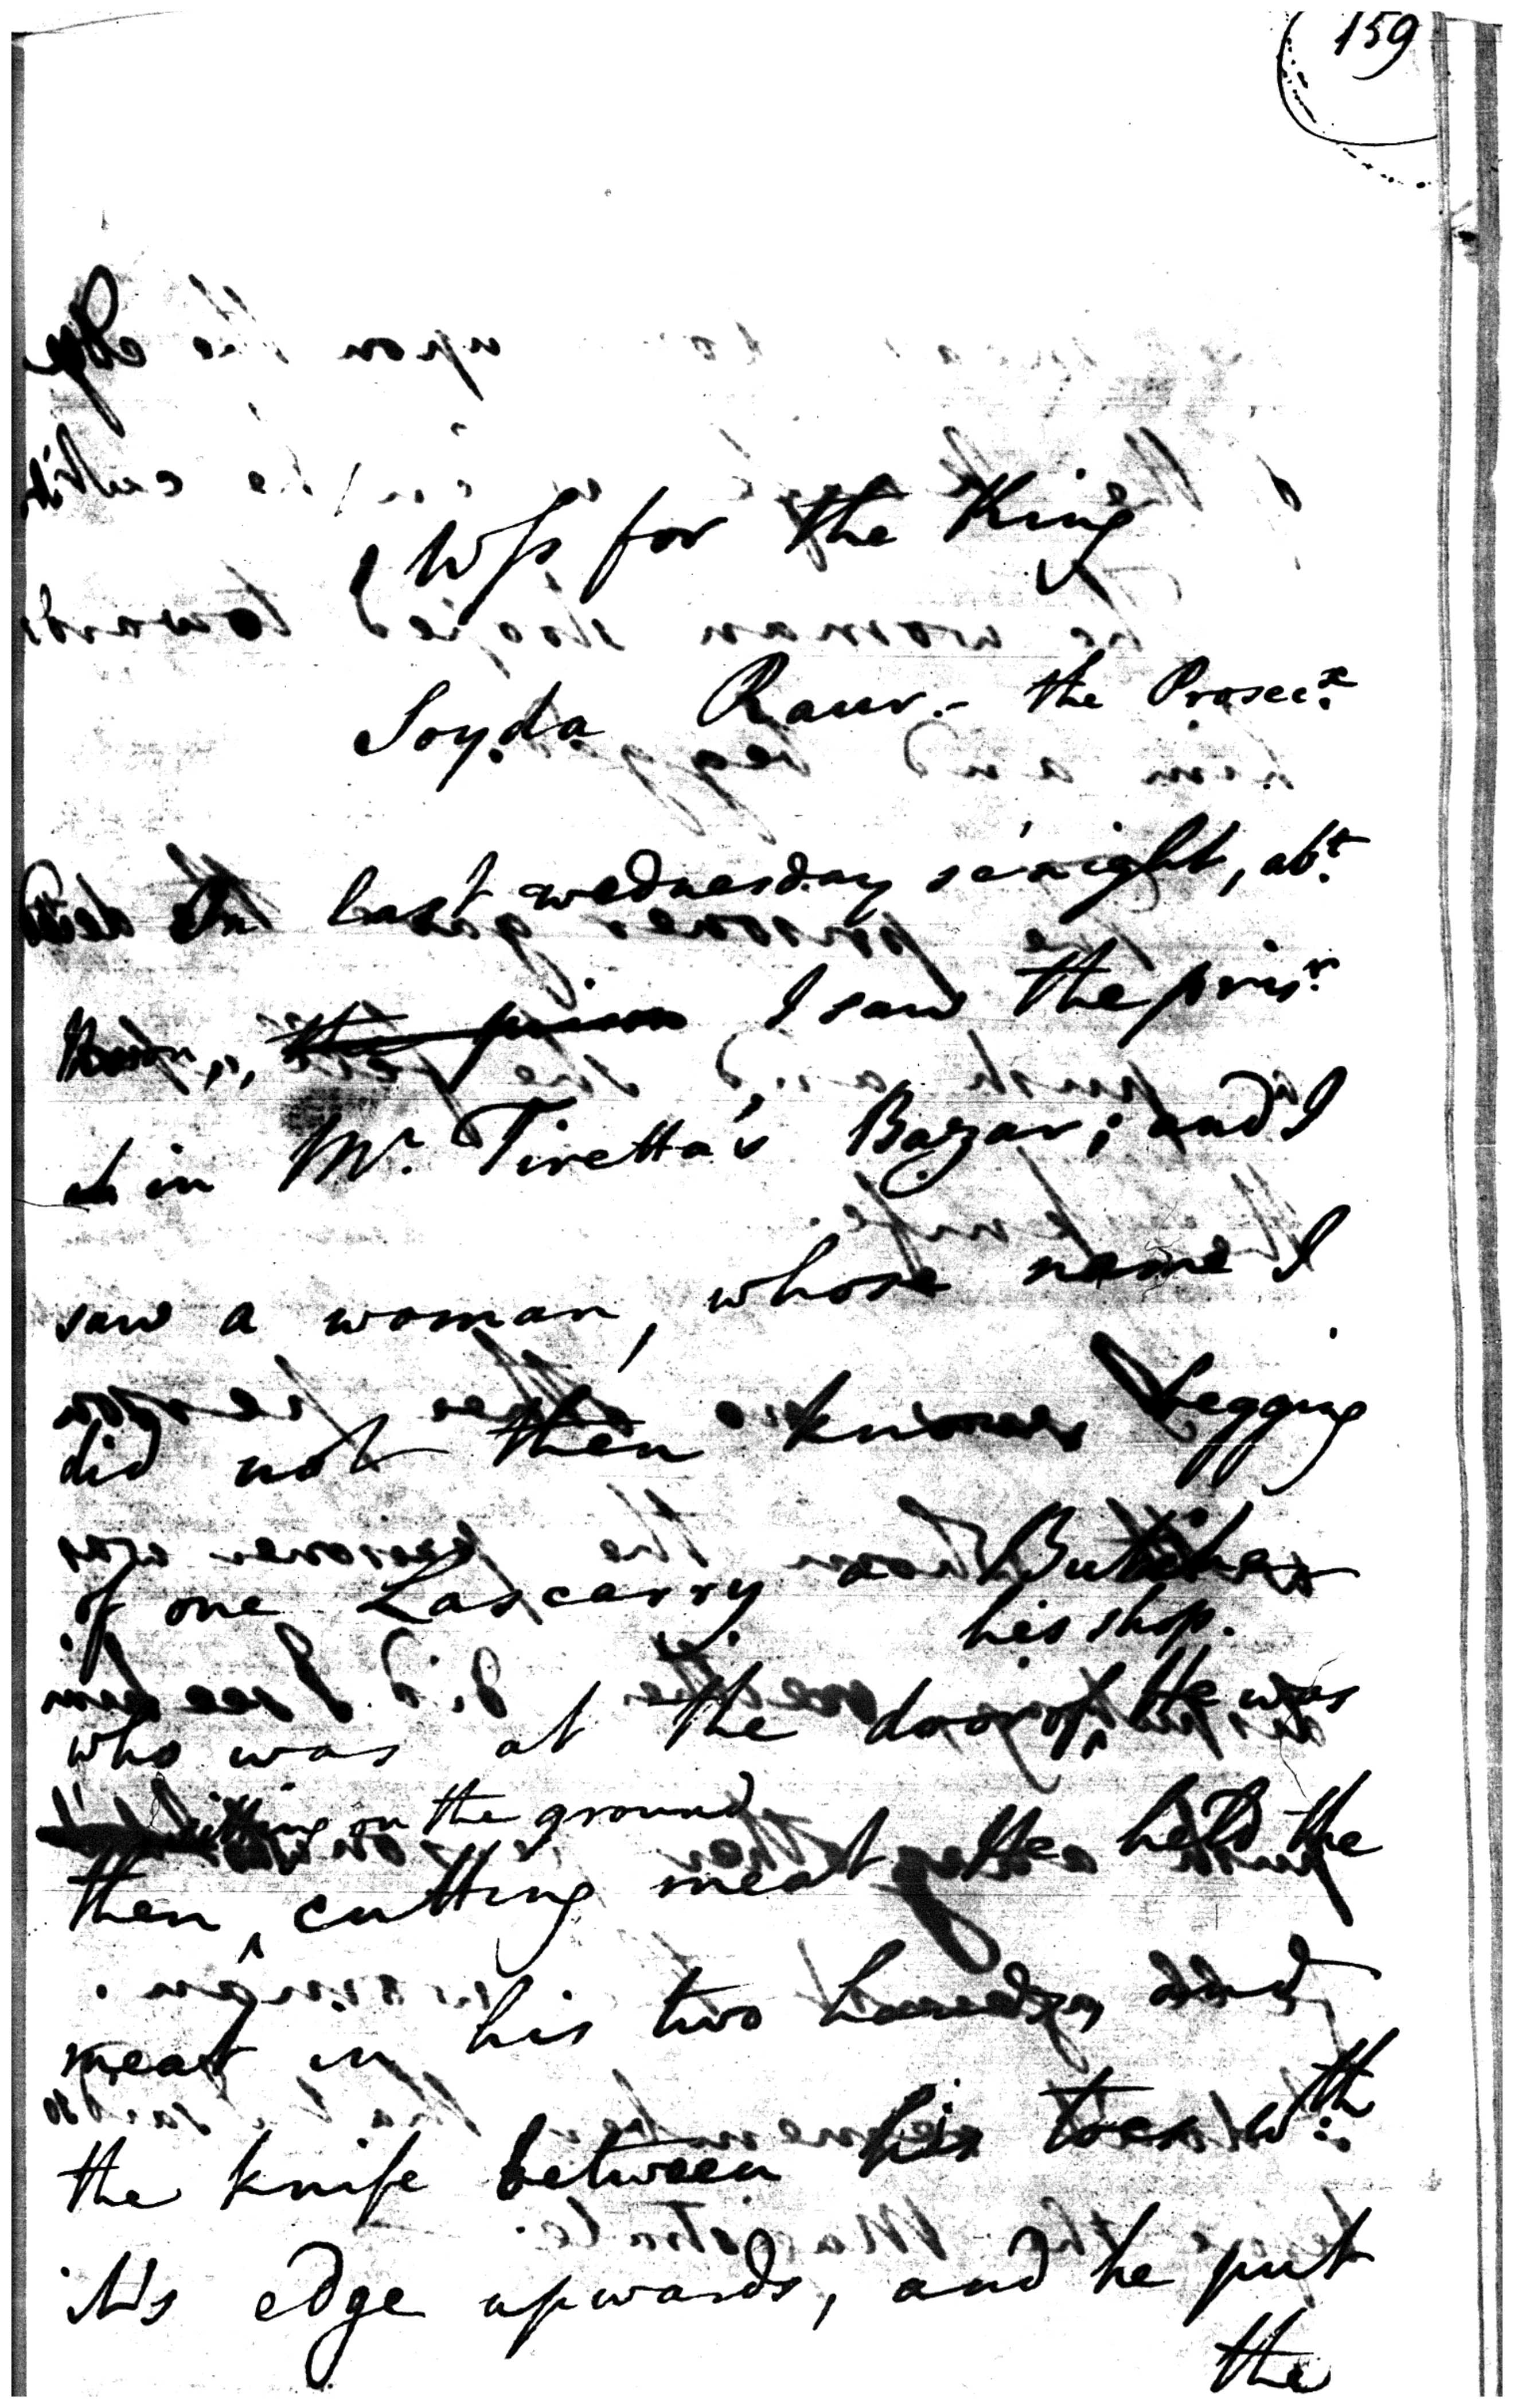 159
Wss for the King
Soyda Raur - the Prosecx.
last wednesday se'night, abt.
noon, the prison I saw the prisr.
in Mr. Tiretta's Bazar; and I
saw a woman, whose name I
did not then know begging
of one Lascarry a Butcher
his shop.
who was at the door of He was
sitting on the ground
then cutting meat He held the
meat in his two hands and
the knife between his toes wth.
it's edge upwards, and he put
the